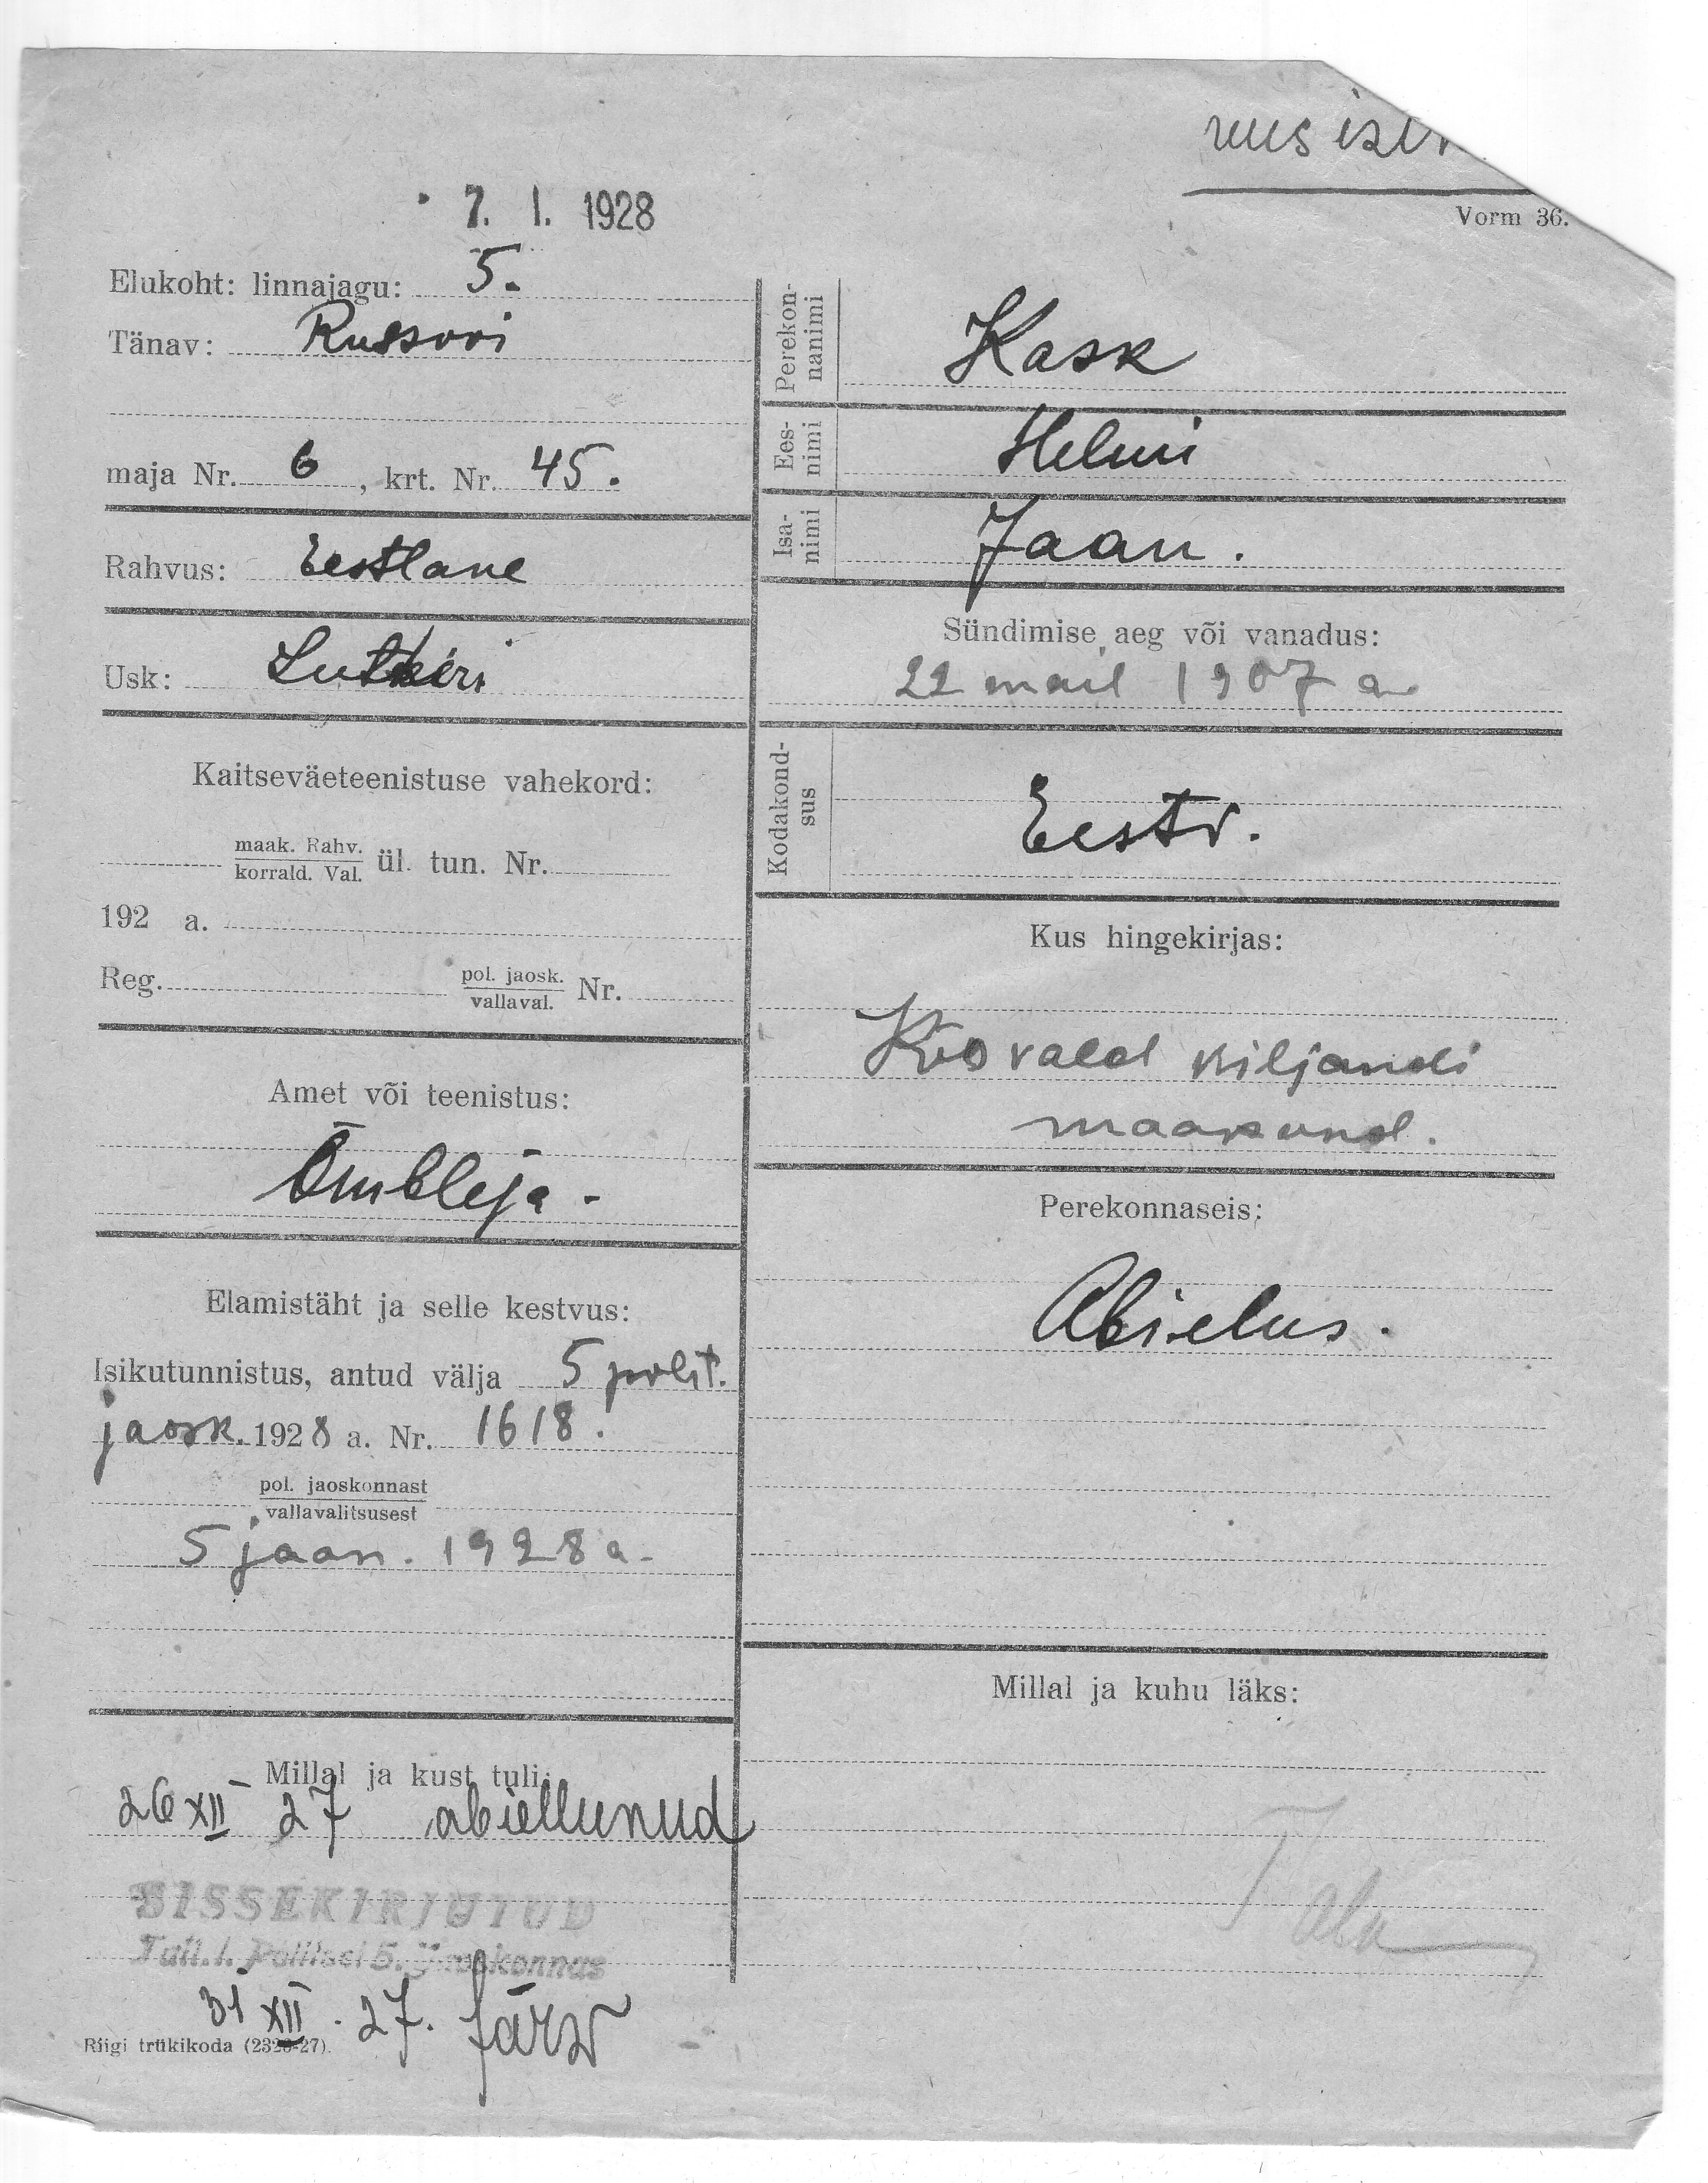 uus
7. I. 1928
Vorm 36.
Elukoht: linnajagu: 5.
Tänav: Russovi
maja Nr. 6, krt. Nr. 45.
Rahvus: Eestlane
Usk: Lutheri
Kaitseväeteenistuse vahekord:
maak. Rahv.
korrald. Val. ül. tun. Nr.
192 a.
Reg. pol. jaosk.
vallaval. Nr.
Amet või teenistus:
Õmbleja -
Elamistäht ja selle kestvus:
Isikutunnistus, antud välja 5 polit.
jaosk. 1928 a. Nr. 1618.
pol. jaoskonnast
vallavalitsusest
5 jaan. 1928 a.
Millal ja kust tuli:
26 XII 27 abiellunud
SISSEKIRJUTUD
Tall. l. Politsei 5. Jaoskonnas
31 XII. 27. Järw
Riigi trükikoda (2323-27).
Perekon-
nanimi
Kask
Ees-
nimi
Helmi
Isa-
nimi
Jaan.
Sündimise aeg või vanadus:
22 mail 1907 a.
Kodakond-
sus
Eestv.
Kus hingekirjas:
Kõo vald Viljandi
maakond.
Perekonnaseis:
Abielus.
Millal ja kuhu läks: